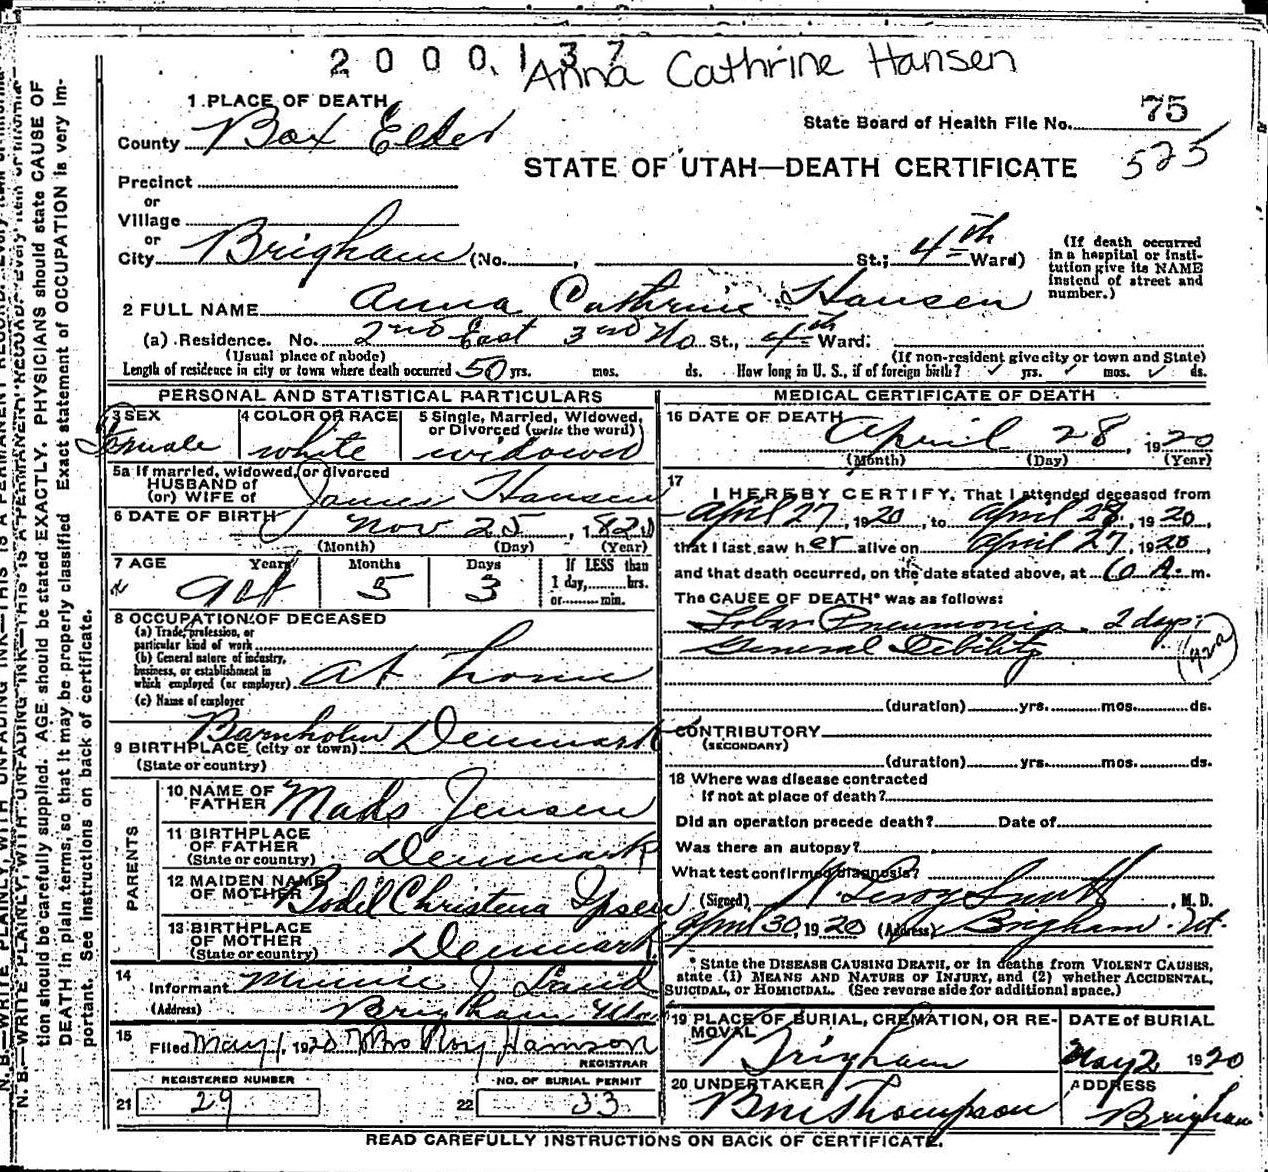 2000.137
Anna Cathrine Hansen
1 PLACE OF DEATH
County Box Elder
State Board of Health File No. 75
525
STATE OF UTAH—DEATH CERTIFICATE
Precinct
or
Village
or
City Brigham (No. , St.; 4th Ward)
(If death occurred in a hospital or institution give its NAME instead of street and number.)
2 FULL NAME Anna Cathrine Hansen
(a) Residence. No. 2nd East 3rd No. St., 4th Ward:
(Usual place of abode) (If non-resident give city or town and State)
Length of residence in city or town where death occurred 50 yrs. mos. ds. How long in U. S., if of foreign birth? yrs. mos. ds.
PERSONAL AND STATISTICAL PARTICULARS
3 SEX Female
4 COLOR OR RACE white
5 Single, Married, Widowed, or Divorced (write the word) widowed
5a If married, widowed, or divorced
HUSBAND of
(or) WIFE of James Hansen
6 DATE OF BIRTH Nov 25, 182
(Month) (Day) (Year)
7 AGE Years Months 5 Days 3
If LESS than 1 day, hrs. or min.
8 OCCUPATION OF DECEASED
(a) Trade, profession, or particular kind of work
(b) General nature of industry, business, or establishment in which employed (or employer) at home
(c) Name of employer
9 BIRTHPLACE (city or town) Barnholm Denmark
(State or country)
PARENTS
10 NAME OF FATHER Mads Jensen
11 BIRTHPLACE OF FATHER (State or country) Denmark
12 MAIDEN NAME OF MOTHER Bodel Christena Ipsen
13 BIRTHPLACE OF MOTHER (State or country) Denmark
14 Informant Minnie J
(Address) Brigham
15 Filed May 1, 1920 Mrs Roy Hamson
REGISTRAR
REGISTERED NUMBER
21 29
NO. OF BURIAL PERMIT
22 33
MEDICAL CERTIFICATE OF DEATH
16 DATE OF DEATH April 28, 1920
(Month) (Day) (Year)
17 I HEREBY CERTIFY, That I attended deceased from
April 27, 1920, to April 28, 1920,
that I last saw her alive on April 27, 1920
and that death occurred, on the date stated above, at 6 A. m.
The CAUSE OF DEATH* was as follows:
Lobar Pneumonia 2 days;
General Debility
(92a)
(duration) yrs. mos. ds.
CONTRIBUTORY
(SECONDARY)
(duration) yrs. mos. ds.
18 Where was disease contracted
if not at place of death?
Did an operation precede death? Date of
Was there an autopsy?
What test confirmed diagnosis?
(Signed) W Leroy Smith, M. D.
April 30, 1920 (Address) Brigham Ut.
* State the DISEASE CAUSING DEATH, or in deaths from VIOLENT CAUSES,
state (1) MEANS AND NATURE OF INJURY, and (2) whether ACCIDENTAL,
SUICIDAL, or HOMICIDAL. (See reverse side for additional space.)
19 PLACE OF BURIAL, CREMATION, OR REMOVAL Brigham
DATE of BURIAL May 2 1920
20 UNDERTAKER Thompson
ADDRESS Brigham
READ CAREFULLY INSTRUCTIONS ON BACK OF CERTIFICATE.
N. B.—WRITE PLAINLY, WITH UNFADING INK—THIS IS A PERMANENT RECORD.
tion should be carefully supplied. AGE should be stated EXACTLY. PHYSICIANS should state CAUSE OF
DEATH in plain terms, so that it may be properly classified Exact statement of OCCUPATION is very im-
portant. See instructions on back of certificate.